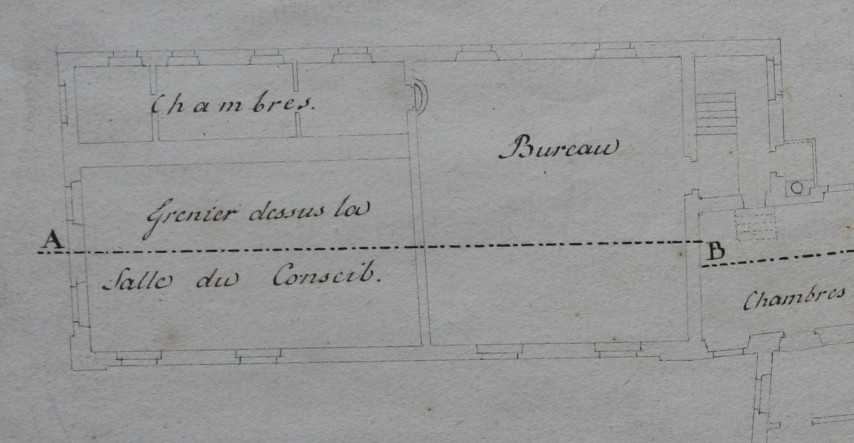 Chambres.
Bureau
Grenier dessus la
A
B
Salle du Conseil.
Chambres